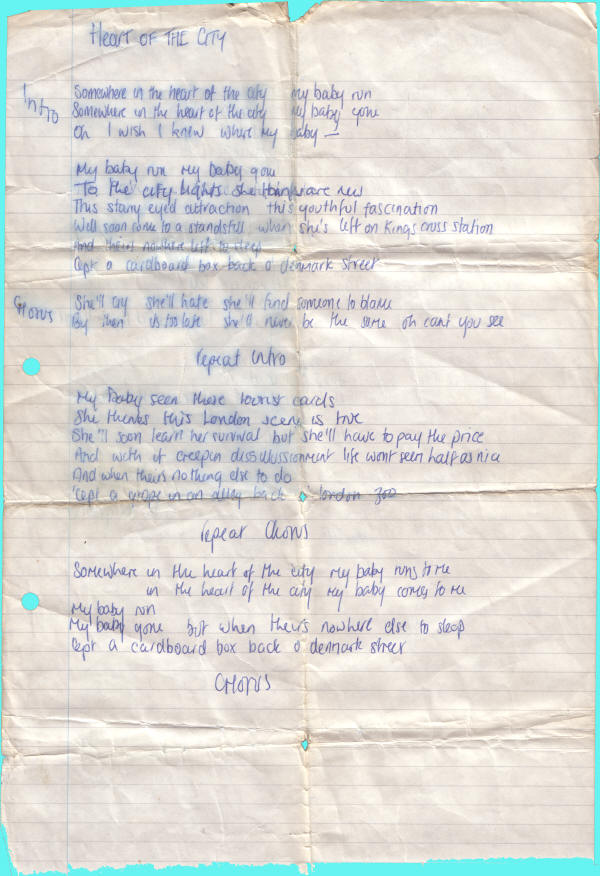 HEART OF THE CITY
Intro
Somewhere in the heart of the city my baby run
Somewhere in the heart of the city my baby gone
Oh I wish I knew where my baby —
My baby run my baby gone
To the city lights she thinks are new
This starry eyed attraction this youthful fascination
Will soon come to a standstill when she's left on Kings cross station
And theirs nowhere left to sleep
Cept a cardboard box back o' denmark street
Chorus
She'll cry she'll hate she'll find someone to blame
By then its too late she'll never be the same oh cant you see
repeat intro
My Baby seen these tourist cards
She thinks this London scene is true
She'll soon learn her survival but she'll have to pay the price
And with it creepin dissillussionment life wont seem half as nice
And when theirs nothing else to do
'cept a grope in an alley back o' london zoo
repeat Chorus
Somewhere in the heart of the city my baby runs to me
in the heart of the city my baby comes to me
My baby run
My baby gone but when theirs nowhere else to sleep
Cept a cardboard box back o denmark street
CHORUS